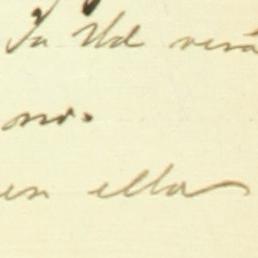 Ya Ud verá
no.
en ella